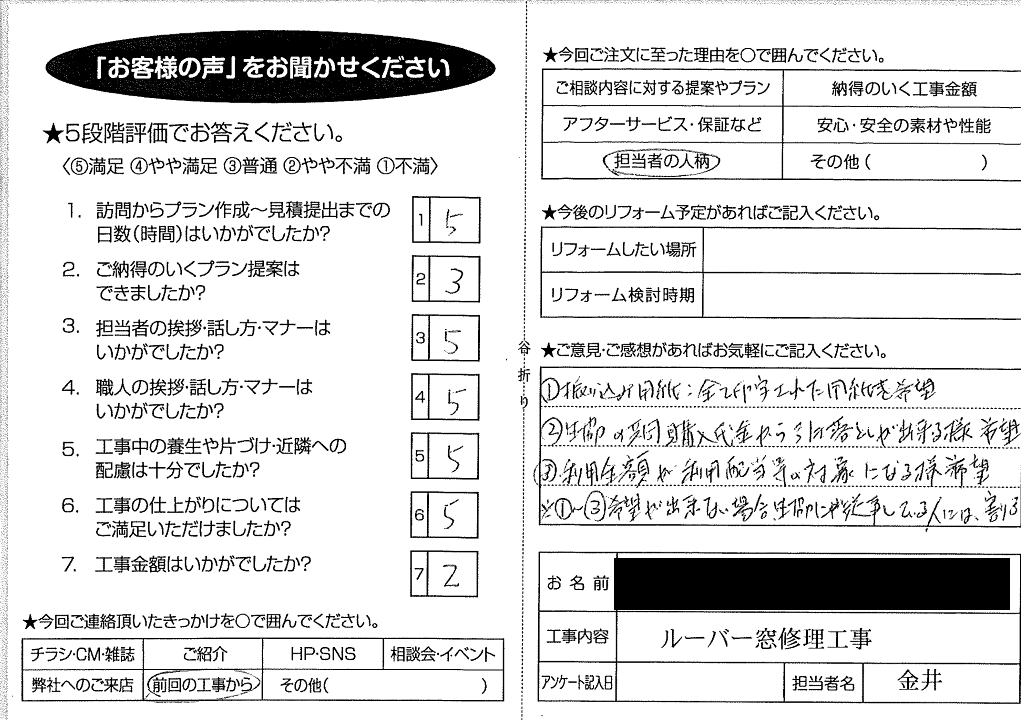 「お客様の声」をお聞かせください
★5段階評価でお答えください。
〈⑤満足 ④やや満足 ③普通 ②やや不満 ①不満〉
1. 訪問からプラン作成〜見積提出までの
日数(時間)はいかがでしたか?
1 5
2. ご納得のいくプラン提案は
できましたか?
2 3
3. 担当者の挨拶・話し方・マナーは
いかがでしたか?
3 5
4. 職人の挨拶・話し方・マナーは
いかがでしたか?
4 5
5. 工事中の養生や片づけ・近隣への
配慮は十分でしたか?
5 5
6. 工事の仕上がりについては
ご満足いただけましたか?
6 5
7. 工事金額はいかがでしたか?
7 2
★今回ご連絡頂いたきっかけを〇で囲んでください。
チラシ・CM・雑誌 ご紹介 HP・SNS 相談会・イベント
弊社へのご来店 前回の工事から その他( )
谷折り
★今回ご注文に至った理由を〇で囲んでください。
ご相談内容に対する提案やプラン 納得のいく工事金額
アフターサービス・保証など 安心・安全の素材や性能
担当者の人柄 その他( )
★今後のリフォーム予定があればご記入ください。
リフォームしたい場所
リフォーム検討時期
★ご意見・ご感想があればお気軽にご記入ください。
①振り込み用紙:全て印字された用紙を希望
②生協の共同購入代金から引き落としが出来る様希望
③利用金額が利用配当等の対象になる様希望
※①〜③希望が出来ない場合、生協に従事している人には、割る
お名前
工事内容 ルーバー窓修理工事
アンケート記入日 担当者名 金井